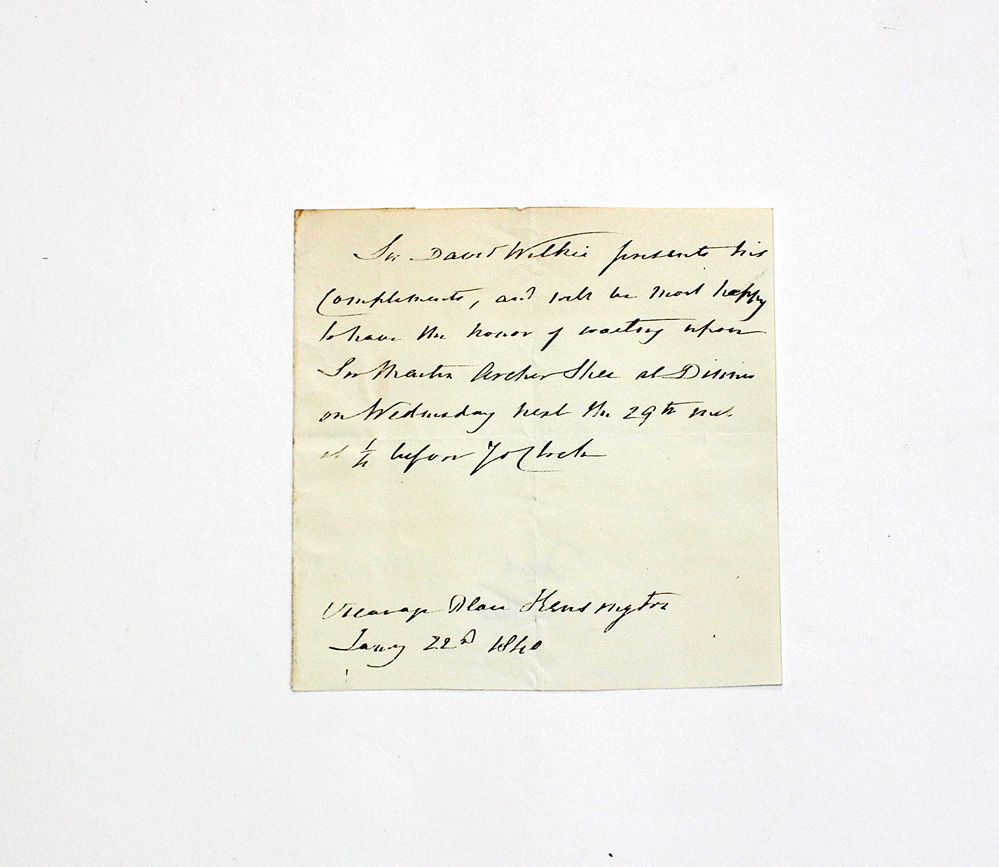 Sir David Wilkie presents his
Compliments, and will be most happy
to have the honor of waiting upon
Sir Martin Archer Shee at Dinner
on Wednesday next the 29th inst.
at ¼ before 7 o'Clock
Vicarage Place Kensington
Jany 22nd 1840